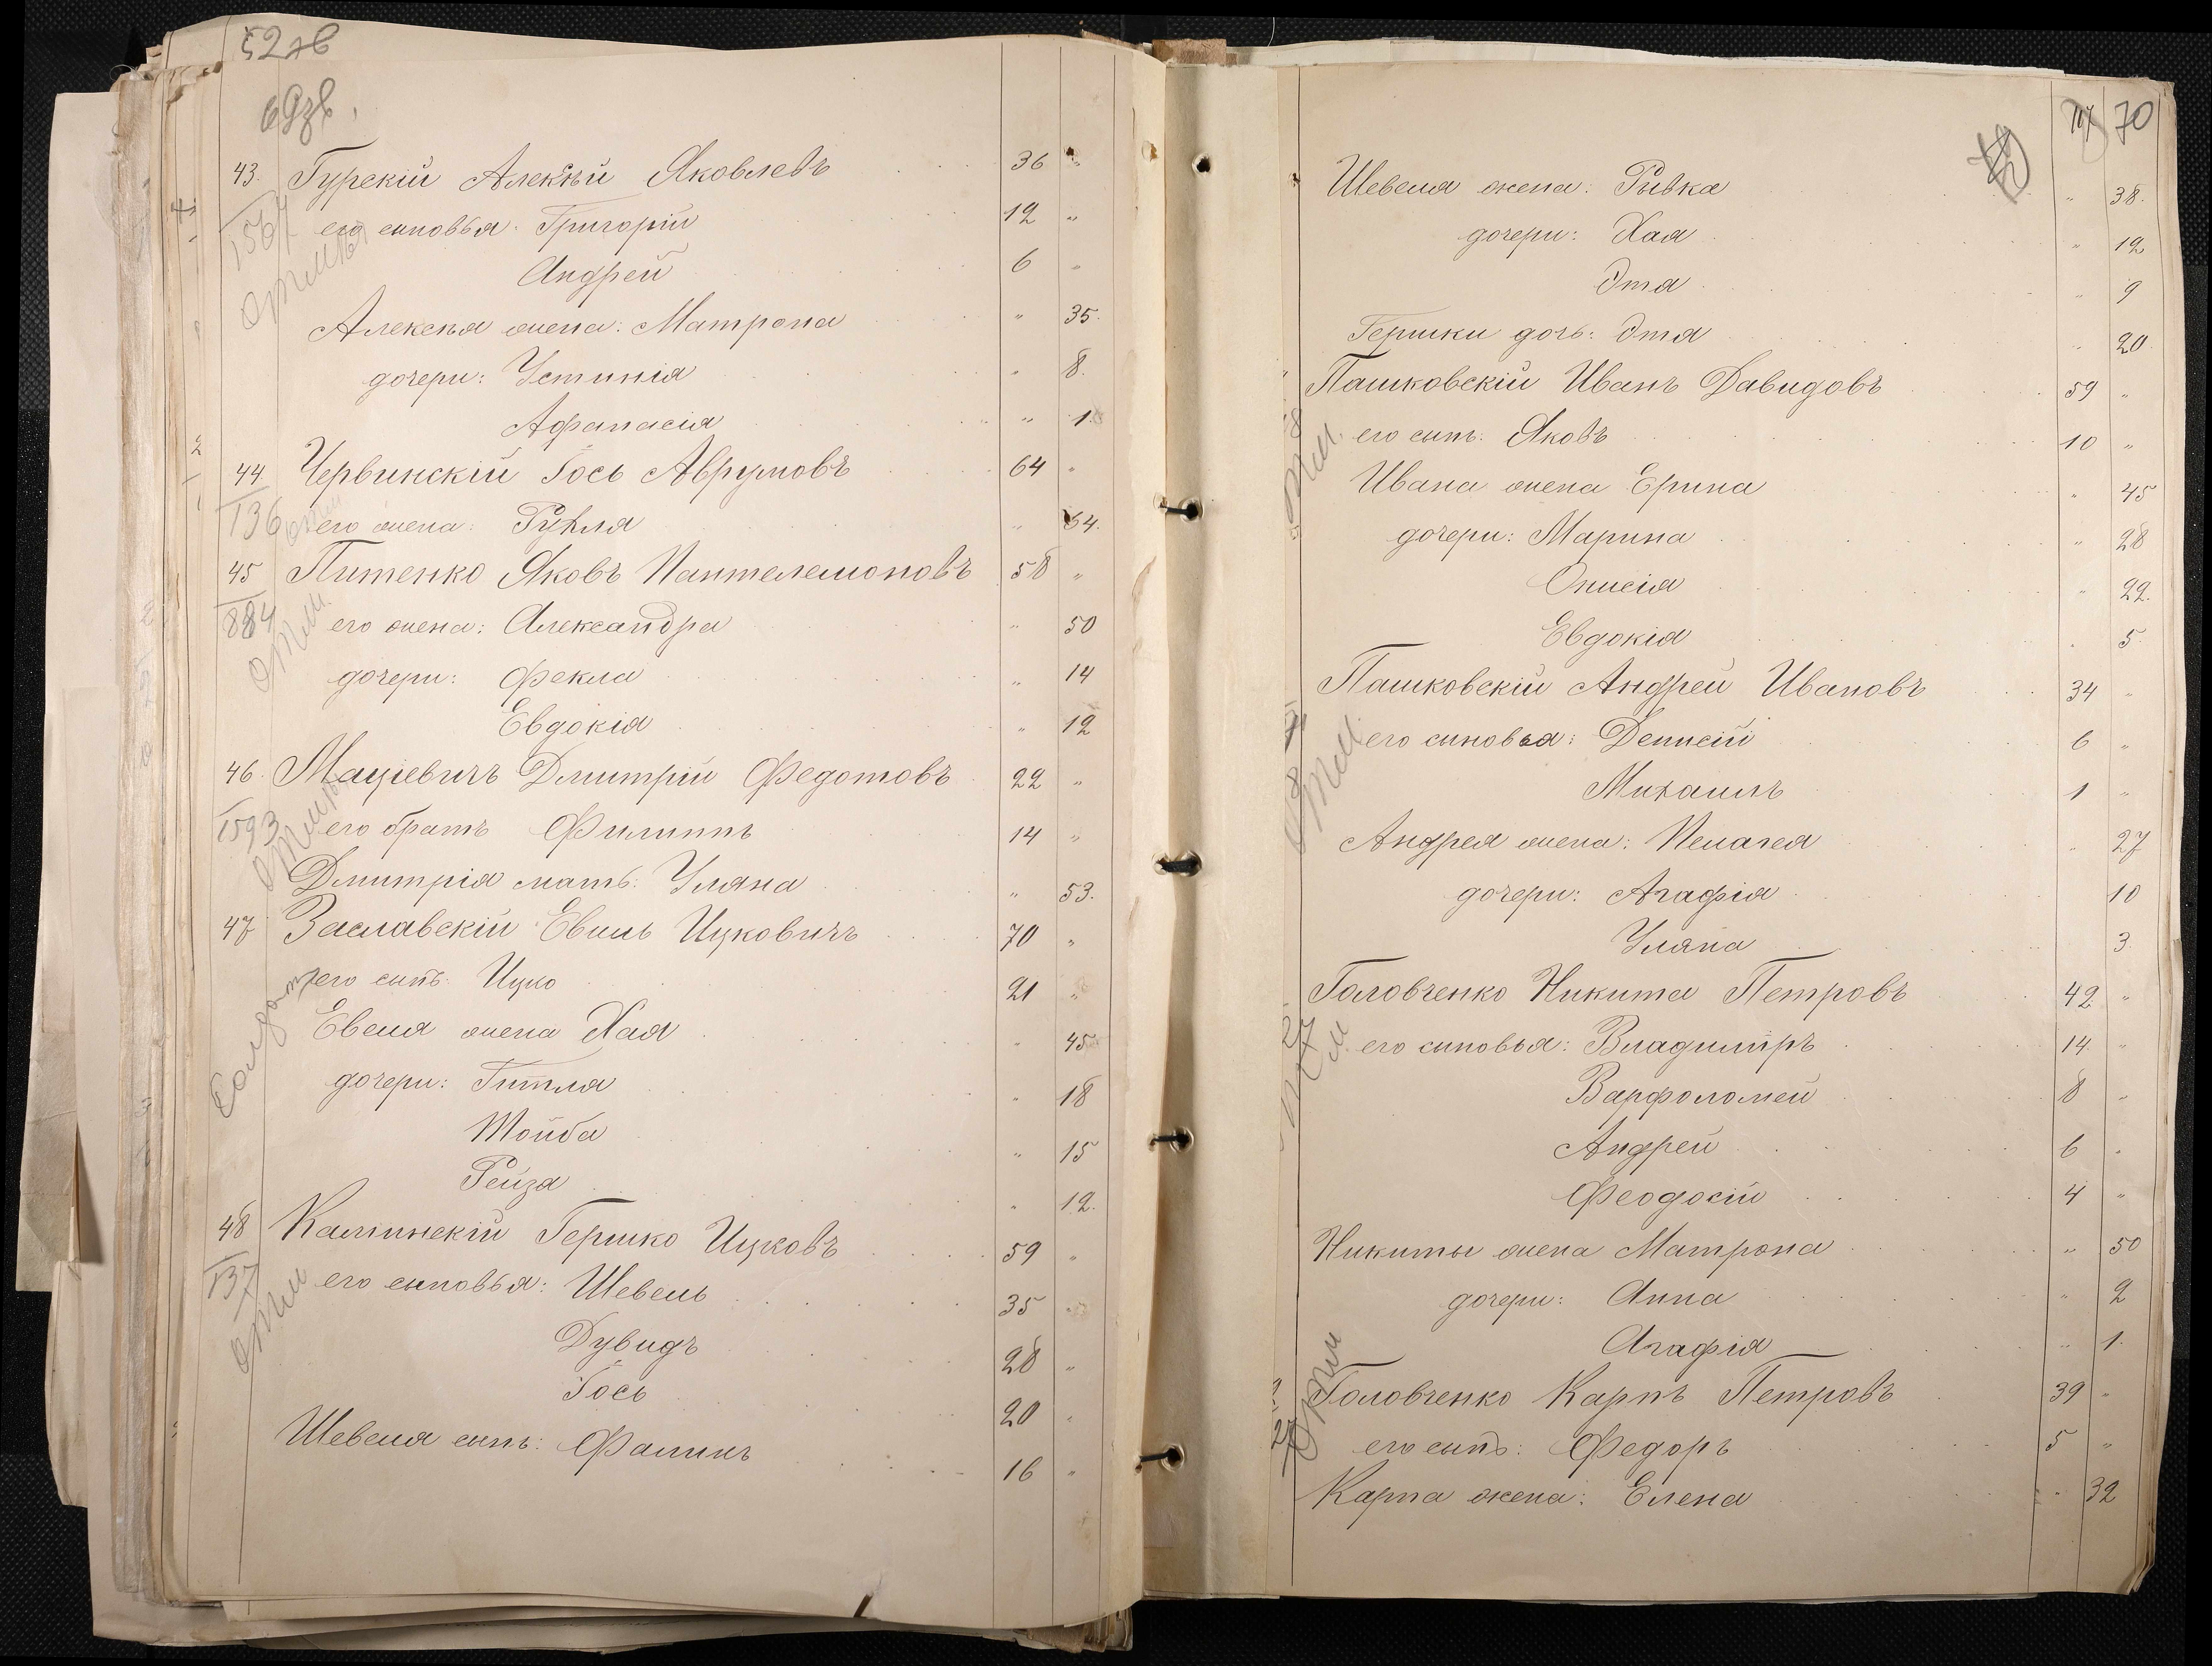 52зв
69зв.
43. Гурскій Алексѣй Яковлевъ 36 "
1564 его сыновья: Григорій 12 "
Андрей 6 "
Алексѣя жена: Матрона " 35.
дочери: Устинія " 8.
Афанасія " 1.
44 Червинскій Іось Аврумовъ 64 "
136 его жена: Рухля " 64.
45 Питенко Яковъ Пантелемоновъ 58 "
884 его жена: Александра " 50
дочери: Фекла " 14
Евдокія " 12
46. Мацієвичъ Дмитрій Федотовъ 22 "
1593 его братъ Филиппъ 14 "
Дмитрія мать: Уляна " 53.
47 Заславскій Евель Ицковичъ 70 "
его сынъ: Ицко 21 "
Евеля жена Хая " 45
дочери: Гитля " 18
Тойба " 15
Рейза " 12.
48 Калинскій Гершко Ицковъ 59 "
137 его сыновья: Шевель 35 "
Дувидъ 28 "
Іось 20 "
Шевеля сынъ: 16 "
117 70
Шевеля жена: Ривка " 38.
дочери: Хая " 12
Эта " 9
Гершки дочь: Эта " 20
Пашковскій Иванъ Давидовъ 59 "
его сынъ: Яковъ 10 "
Ивана жена Ерина " 45
дочери: Марина " 28
Онисія " 22.
Евдокія " 5.
Пашковскій Андрей Ивановъ 34 "
его сыновья: Денисій 6 "
Михаилъ 1 "
Андрея жена: Пелагея " 27
дочери: Агафія 10
Уляна " 3.
Головченко Никита Петровъ 42 "
его сыновья: Владиміръ 14 "
Варфоломей 8 "
Андрей 6 "
Феодосій 4 "
Никиты жена Матрона " 50
дочери: Анна " 2
Агафія " 1.
Головченко Карпъ Петровъ 39 "
его сынъ: Федоръ 5 "
Карпа жена: Елена " 32